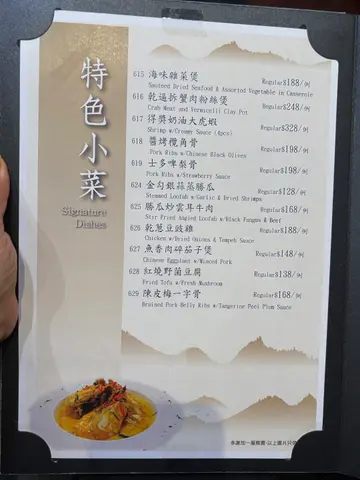 特色小菜
Signature
Dishes
615 海味雜菜煲 Regular$188/例
Sauteed Dried Seafood & Assorted Vegetable in Casserole
616 乾逼拆蟹肉粉絲煲 Regular$248/例
Crab Meat and Vermicelli Clay Pot
617 得獎奶油大虎蝦 Regular$328/例
Shrimp w/Creamy Sauce (4pcs)
618 醬烤欖角骨 Regular$198/例
Pork Ribs w/Chinese Black Olives
619 士多啤梨骨 Regular$198/例
Pork Ribs w/Strawberry Sauce
624 金勾銀蒜蒸勝瓜 Regular$128/例
Stemmed Loofah w/Garlic & Dried Shrimps
625 勝瓜妙雲耳牛肉 Regular$168/例
Stir Fried Angled Loofah w/Black Fungus & Beef
626 乾葱豆豉雞 Regular$188/例
Chicken w/Dried Onions & Tempeh Sauce
627 魚香肉碎茄子煲 Regular$148/例
Chinese Eggplant w/Minced Pork
628 紅燒野菌豆腐 Regular$138/例
Fried Tofu w/Fresh Mushroom
629 陳皮梅一字骨 Regular$168/例
Braised Pork Belly Ribs w/Tangerine Peel Plum Sauce
多謝加一服務費·以上圖片只供